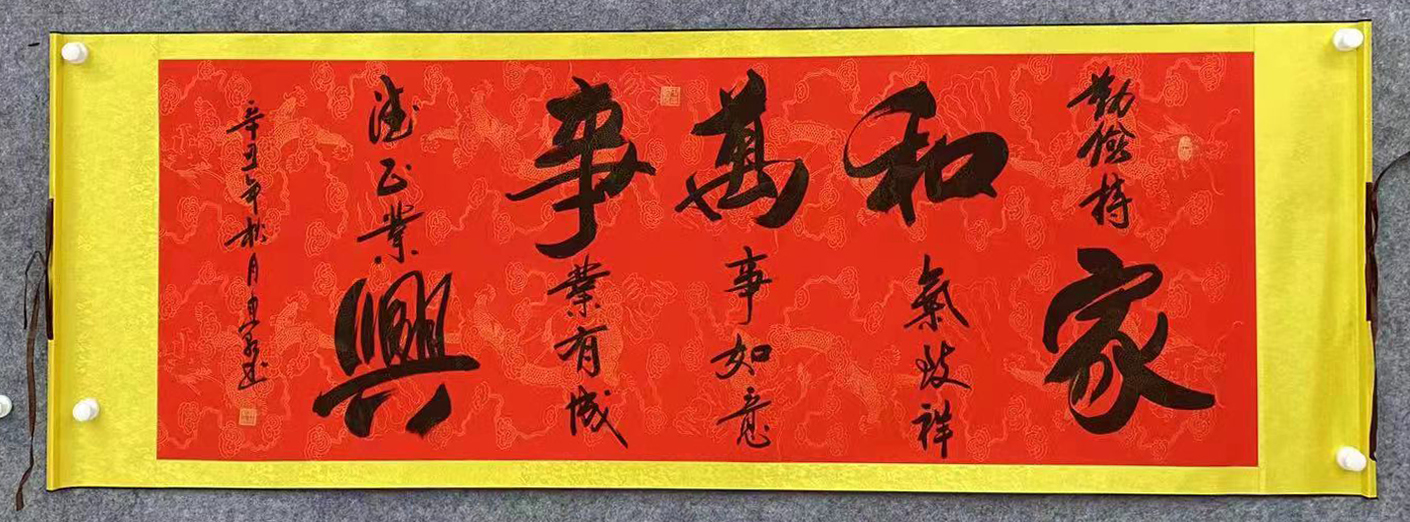 勤儉持家
和氣致祥
萬事如意
事業有成
德正業興
辛丑年秋月